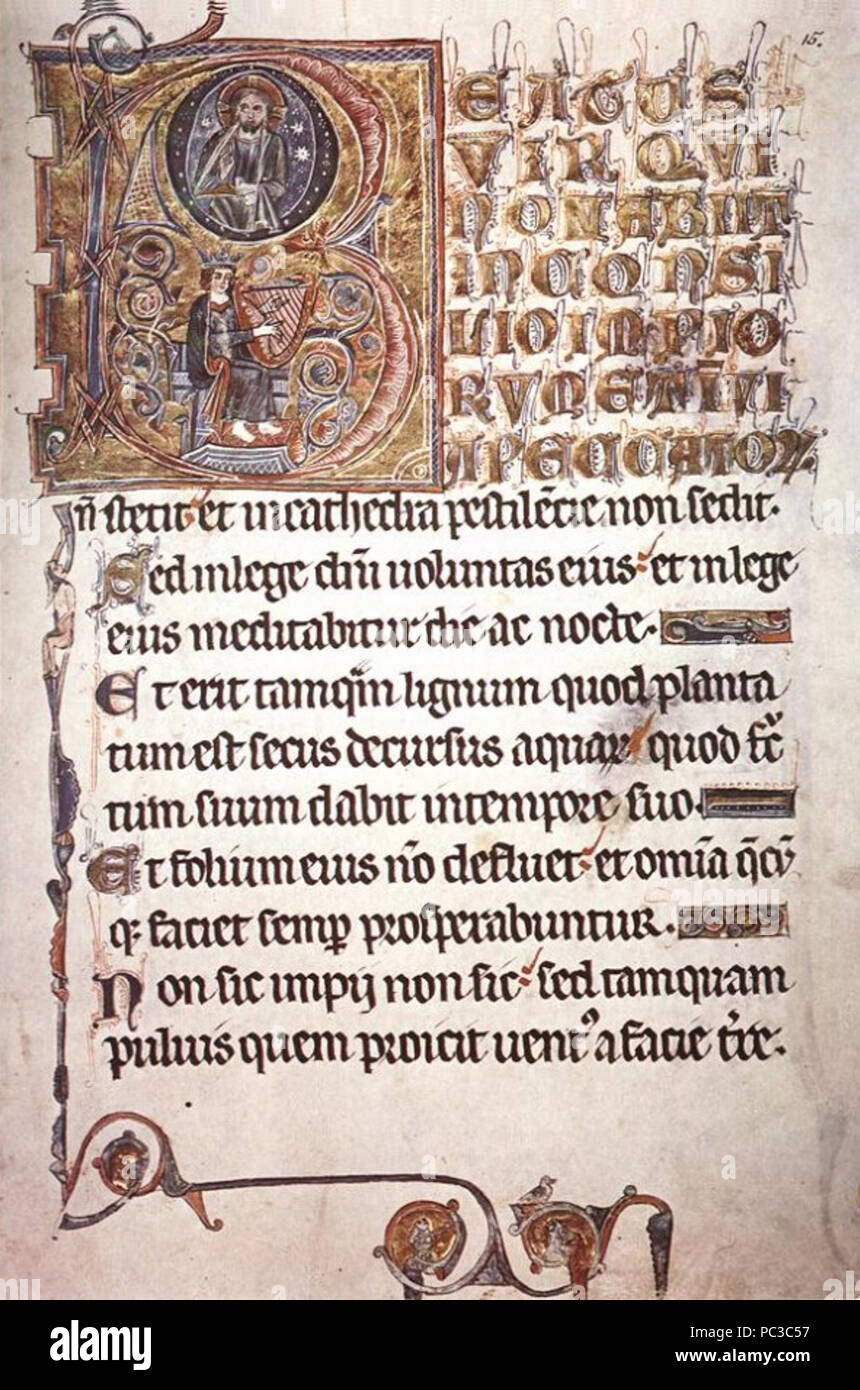 15.
BEATUS
VIR QUI
NON ABIIT
IN CONSI
LIO IMPIO
RUM ET I̅ VI
A PECCATOꝜ
n̄ stetit et in cathedra pestilēcie non sedit.
Sed in lege dn̄i uoluntas eius et in lege
eius meditabitur die ac nocte.
Et erit tamqm̄ lignum quod planta
tum est secus decursus aquaꝝ quod fc̄
tum suum dabit in tempore suo.
Et folium eius nōn defluet et om̄ia q̄cū
qꝫ faciet semꝑ prosperabuntur.
Non sic impij non sic sed tamquam
puluis quem proicit uentꝰ a facie tr̄e.
alamy
Image ID: PC3C57
www.alamy.com